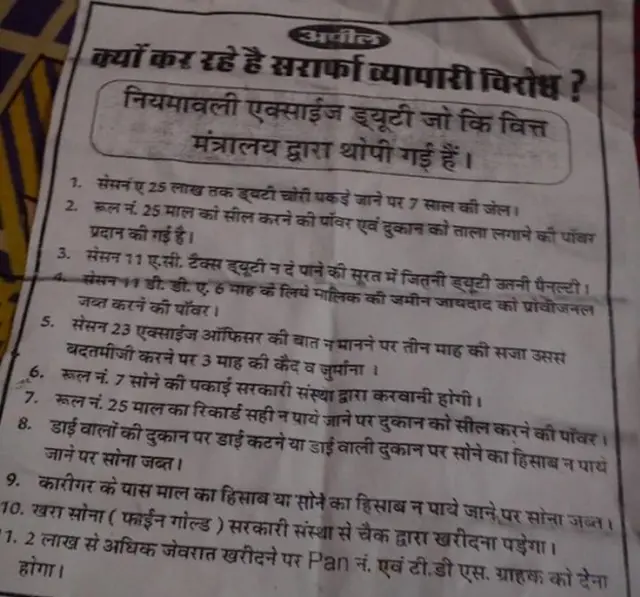 अपील
क्यों कर रहे है सरार्फा व्यापारी विरोध ?
नियमावली एक्साईज ड्यूटी जो कि वित्त
मंत्रालय द्वारा थोपी गई हैं।
1. सेसन ए 25 लाख तक ड्यटी चोरी पकड़े जाने पर 7 साल की जेल।
2. रूल नं. 25 माल को सील करने की पॉवर एवं दुकान को ताला लगाने की पॉवर
प्रदान की गई है।
3. सेसन 11 ए.सी. टैक्स ड्यूटी न दे पाने की सूरत में जितनी ड्यूटी उतनी पैनल्टी।
4. सेसन 11 डी. डी. ए. 6 माह के लिये मालिक की जमीन जायदाद को प्रोवीजनल
जब्त करने की पॉवर।
5. सेसन 23 एक्साईज ऑफिसर की बात न मानने पर तीन माह की सजा उससे
बदतमीजी करने पर 3 माह की कैद व जुर्माना ।
6. रूल नं. 7 सोने की पकाई सरकारी संस्था द्वारा करवानी होगी।
7. रूल नं. 25 माल का रिकार्ड सही न पाये जाने पर दुकान को सील करने की पॉवर।
8. डाई वालों की दुकान पर डाई कटने या डाई वाली दुकान पर सोने का हिसाब न पाये
जाने पर सोना जब्त।
9. कारीगर के पास माल का हिसाब या सोने का हिसाब न पाये जाने पर सोना जब्त।
10. खरा सोना ( फाईन गोल्ड ) सरकारी संस्था से चैक द्वारा खरीदना पड़ेगा।
11. 2 लाख से अधिक जेवरात खरीदने पर Pan नं. एवं टी.डी एस. ग्राहक को देना
होगा।